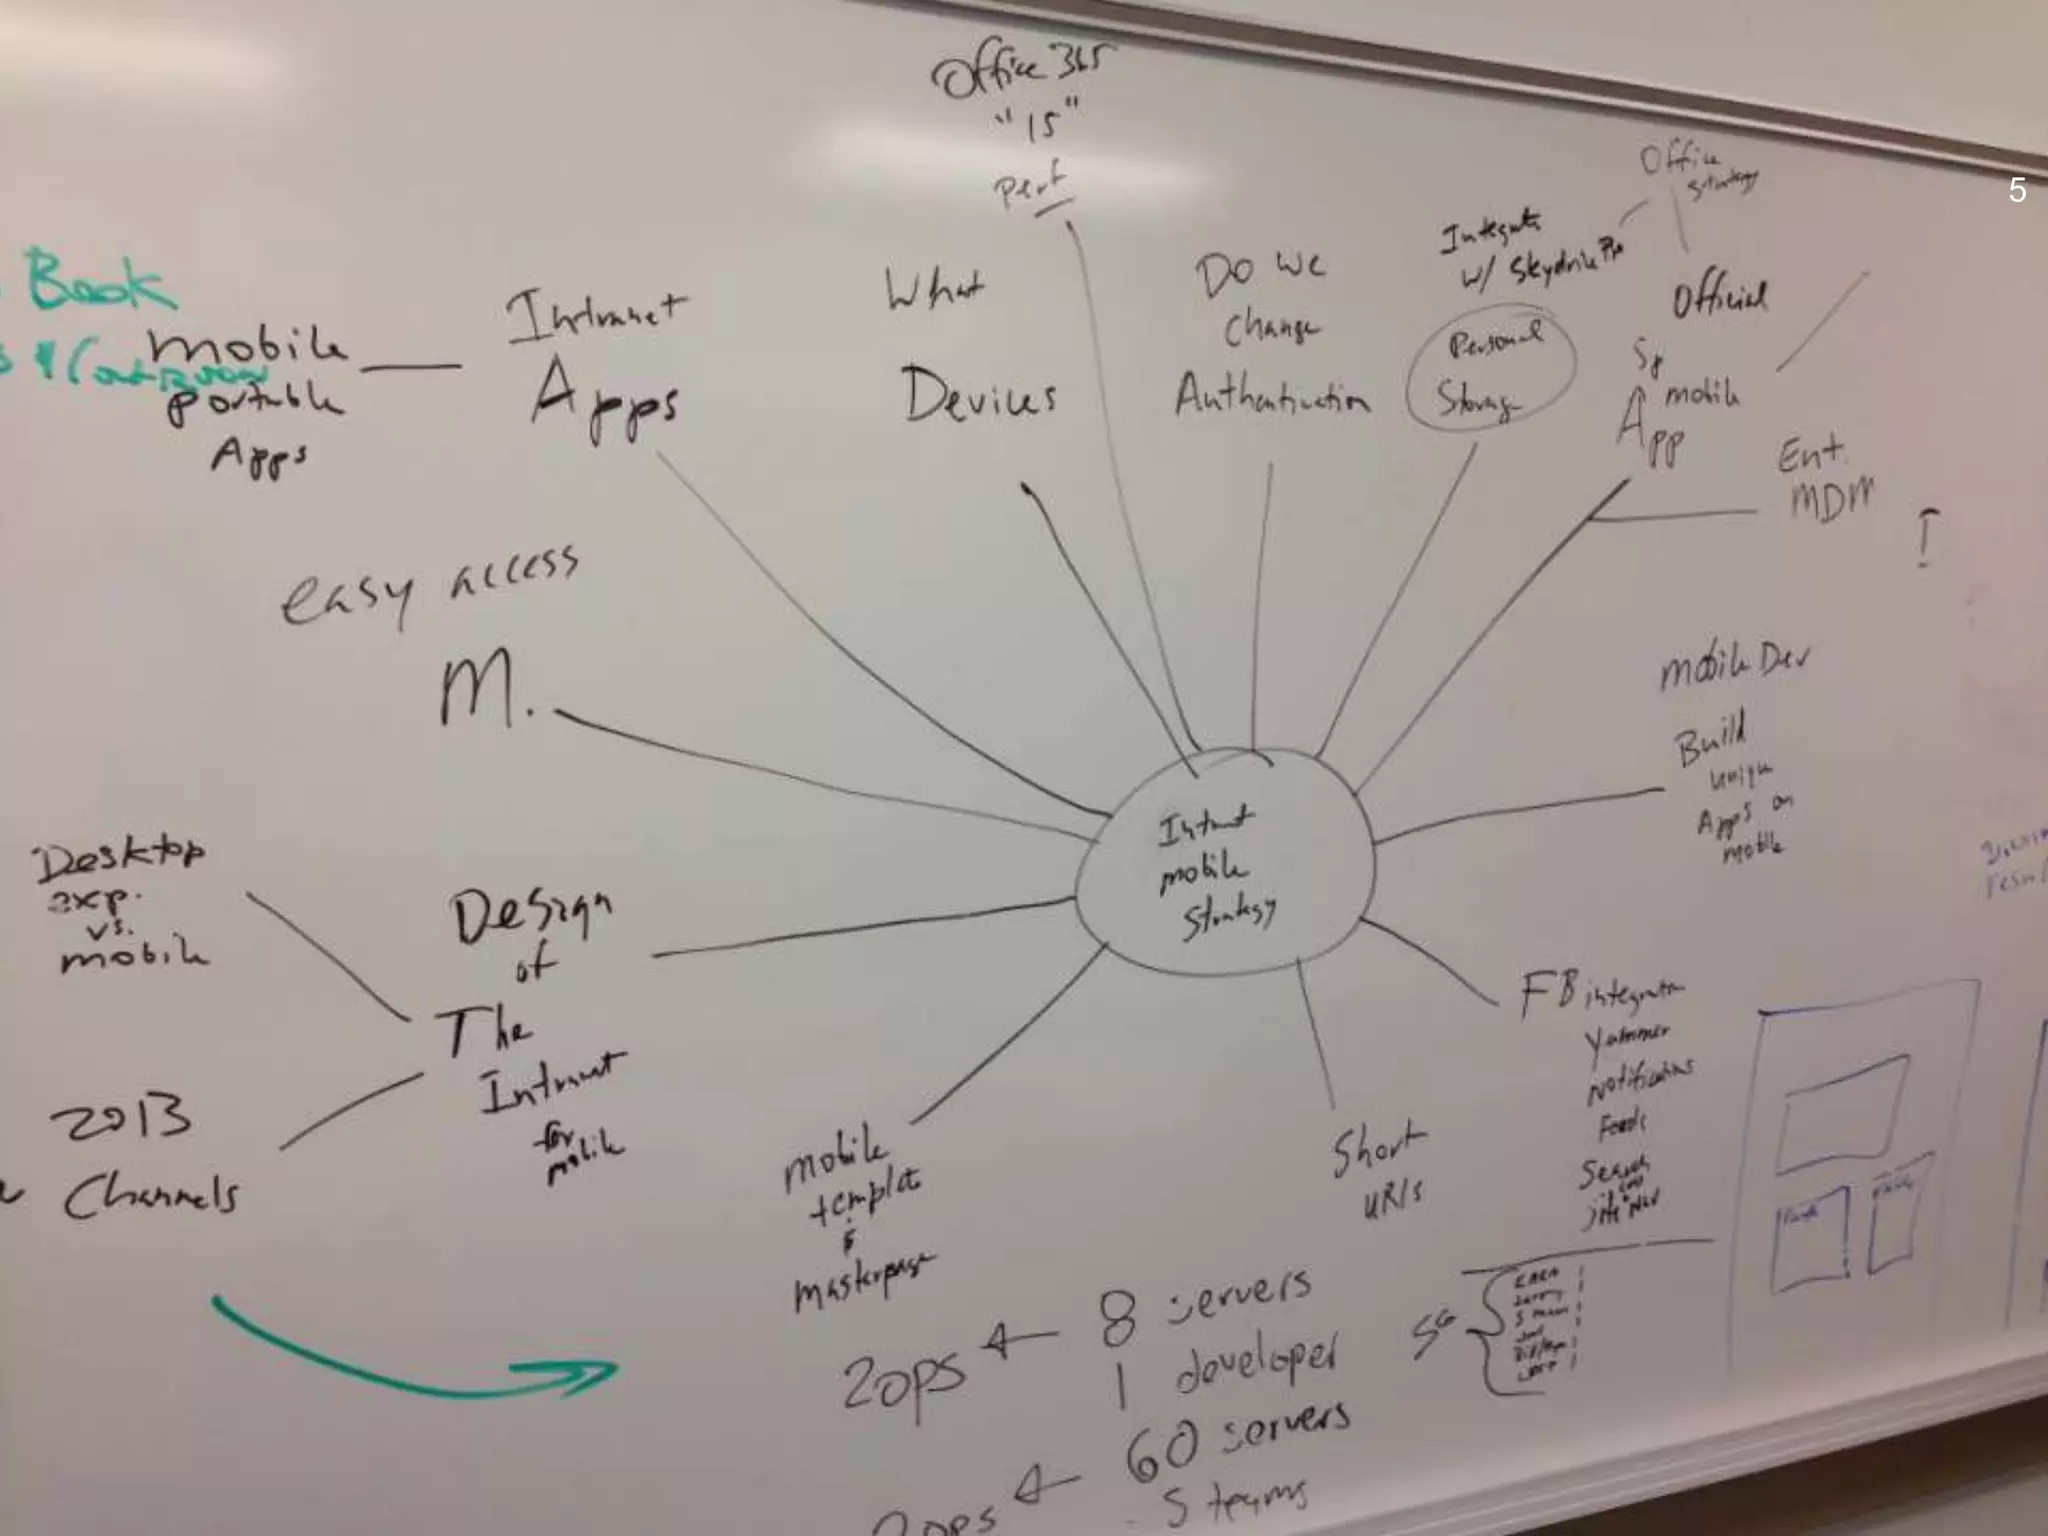 Office 365
"15"
perf
Office
strategy
5
Integrate
w/ Skydrive Pro
Do we
change
Authentication
What
Devices
Personal
Storage
Official
Sp
mobile
App
Ent.
MDM
Book
mobile
portable
Apps
Intranet
Apps
easy access
M.
mobile Dev
Build
unique
Apps on
mobile
Intranet
mobile
Strategy
Desktop
exp.
vs.
mobile
Design
of
The
Intranet
for
mobile
2013
Channels
FB integration
Yammer
Notifications
Feeds
Search
site nav
mobile
templat
&
masterpage
Short
URIs
2ops
8 servers
1 developer
SG
60 servers
2ops
5 teams